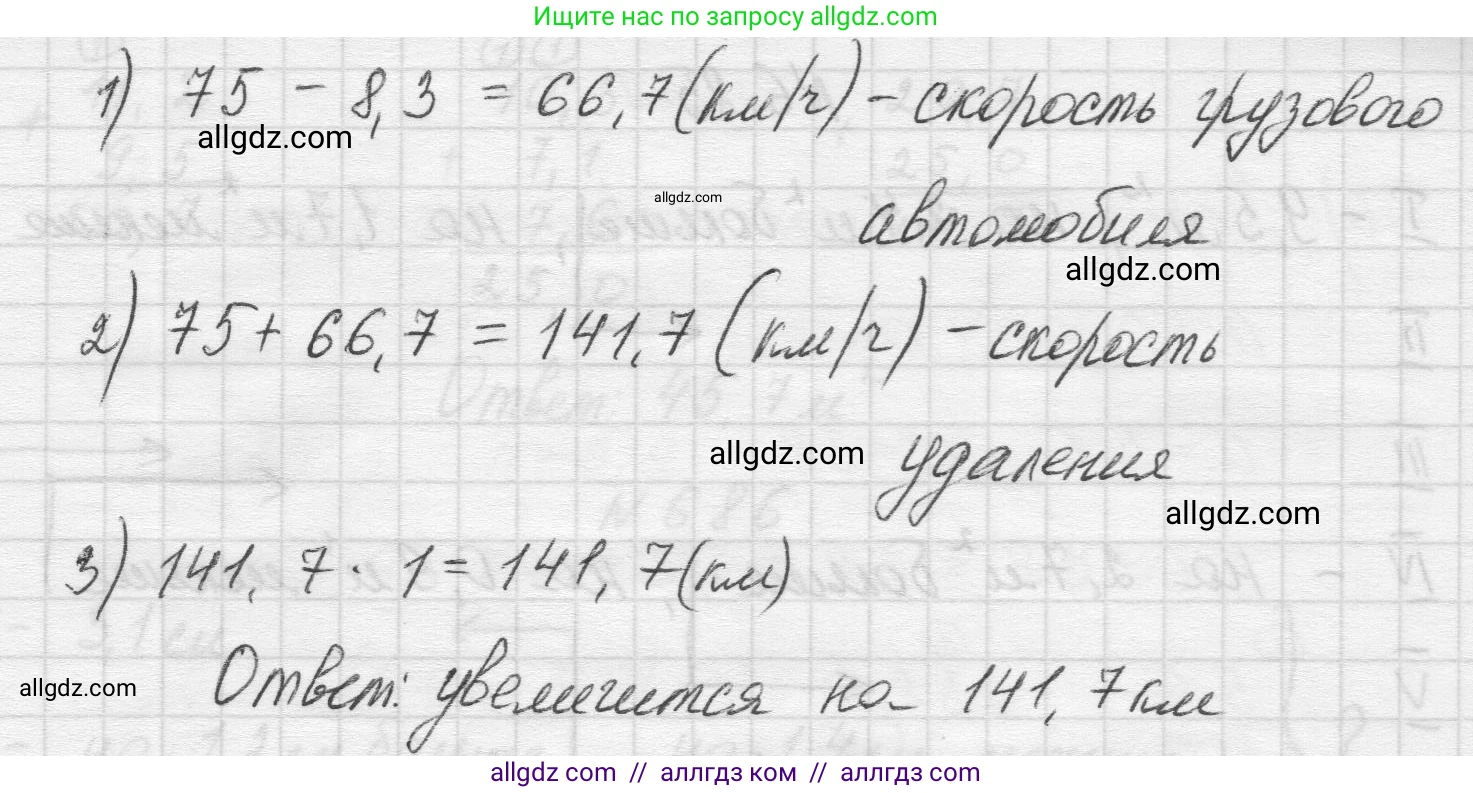 Ищите нас по запросу allgdz.com
1) 75 - 8,3 = 66,7 (км/ч) - скорость грузового
allgdz.com
allgdz.com
автомобиля
allgdz.com
2) 75 + 66,7 = 141,7 (км/ч) - скорость
allgdz.com
удаления
allgdz.com
3) 141,7 · 1 = 141,7 (км)
Ответ: увеличится на 141,7 км
allgdz.com
allgdz com // аллгдз ком // аллгдз com